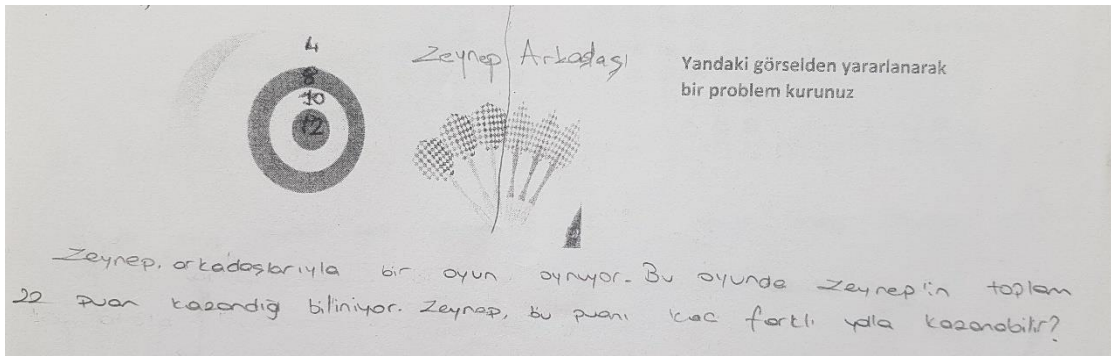 4
8
10
12
Zeynep Arkadaşı
Yandaki görselden yararlanarak
bir problem kurunuz
Zeynep, arkadaşlarıyla bir oyun oynuyor. Bu oyunda Zeynep'in toplam
22 puan kazandığ biliniyor. Zeynep, bu puanı kaç farklı yolla kazanabilir?